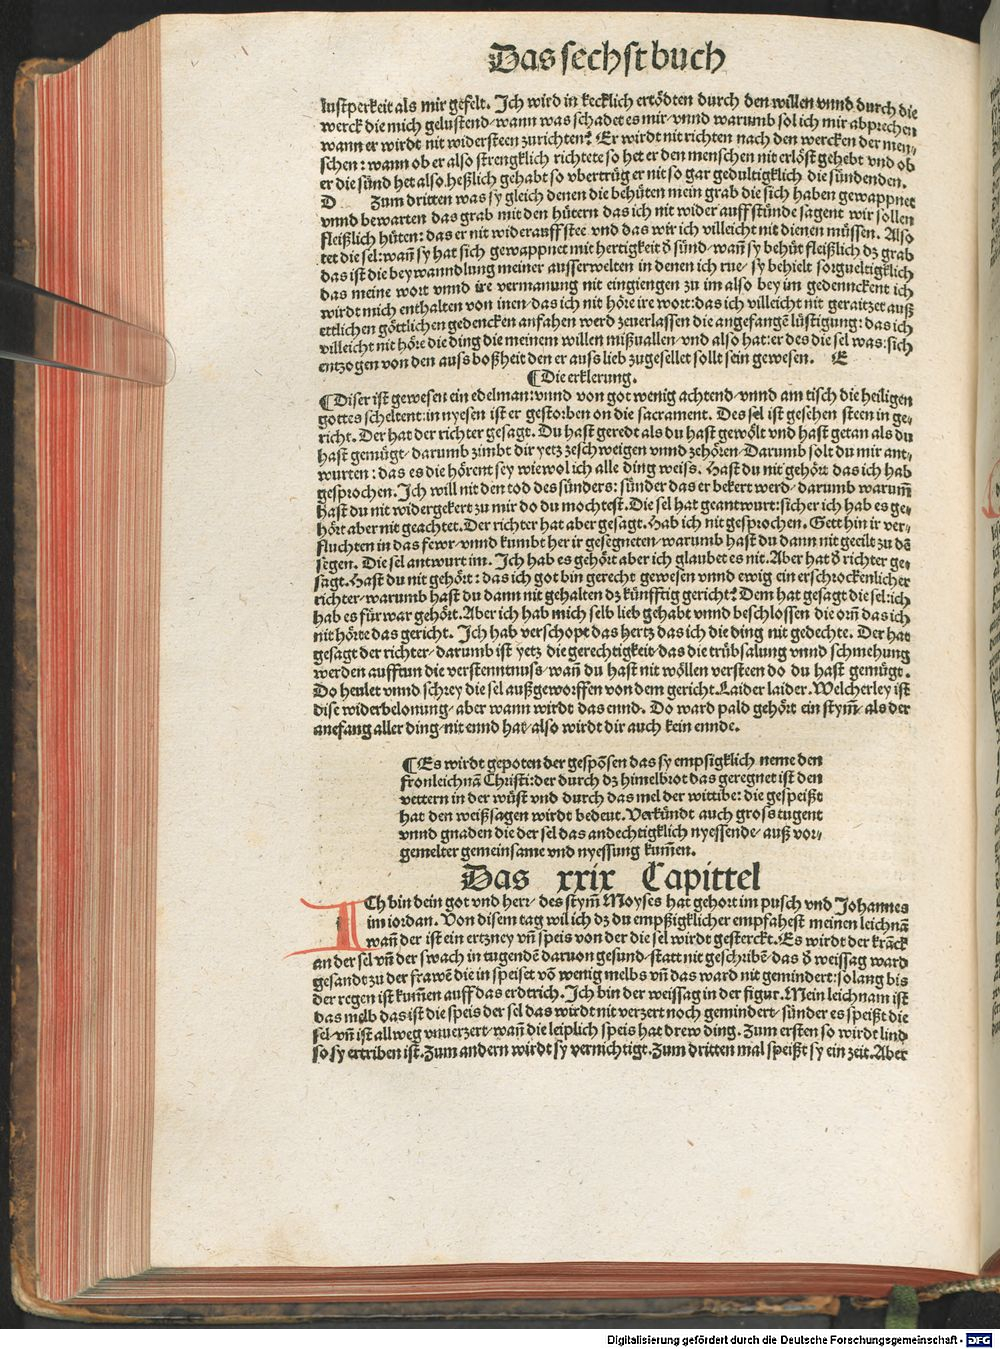 Das sechst buch
lustperkeit als mir gefelt. Ich wird in kecklich ertödten durch den willen vnnd durch die
werck die mich gelustend/ wann was schadet es mir/ vnnd warumb sol ich mir abprechen
wann er wirdt nit widersteen zurichten? Er wirdt nit richten nach den wercken der men/
schen: wann ob er also strengklich richtete so het er den menschen nit erlöst gehebt vnd ob
er die sünd het also heßlich gehabt so vbertrüg er nit so gar gedultigklich die sündenden.
D Zum dritten was sy gleich denen die behüten mein grab die sich haben gewappnet
vnnd bewarten das grab mit den hütern das ich nit wider aufferstünde sagent wir sollen
fleißlich hüten: das er nit widerauffstee vnd das wir ich villeicht nit dienen müssen. Also
tet die sel: wañ sy hat sich gewappnet mit hertigkeit d̕ sünd/ wañ sy behüt fleißlich dz grab
das ist die beywanndlung meiner ausserwelten in denen ich rue/ sy behielt sorgueltigklich
das meine wort vnnd ire vermanung nit eingiengen zu im also bey im gedennckent ich
wirdt mich enthalten von inen/ das ich nit höre ire wort: das ich villeicht nit geraitzet auß
ettlichen göttlichen gedencken anfahen werd zeuerlassen die angefangē lüstigung: das ich
villeicht nit höre die ding die meinem willen mißuallen/ vnd also hat: er des die sel was: sich
entzogen von den auss boßheit den er auss lieb zugesellet sollt sein gewesen. E
¶ Die erklerung.
¶ Diser ist gewesen ein edelman: vnnd von got wenig achtend/ vnnd am tisch die heiligen
gottes scheltent: in nyesen ist er gestorben on die sacrament. Des sel ist gesehen steen in ge/
richt. Der hat der richter gesagt. Du hast geredt als du hast gewölt vnd hast getan als du
hast gemügt/ darumb zimbt dir yetz zeschweigen vnnd zehören/ Darumb solt du mir ant/
wurten: das es die hörent sey wiewol ich alle ding weiss. Hast du nit gehört das ich hab
gesprochen. Ich will nit den tod des sünders: sünder das er bekert werd/ darumb warum̄
hast du nit widergekert zu mir do du mochtest. Die sel hat geantwurt: sicher ich hab es ge/
hört aber nit geachtet. Der richter hat aber gesagt. Hab ich nit gesprochen. Gett hin ir ver/
fluchten in das fewr/ vnnd kumbt her ir gesegneten/ warumb hast du dann nit geeilt zu dē
segen. Die sel antwurt im. Ich hab es gehört aber ich glaubet es nit. Aber hat d̕ richter ge/
sagt. Hast du nit gehört: das ich got bin gerecht gewesen vnnd ewig ein erschrockenlicher
richter/ warumb hast du dann nit gehalten dz künfftig gericht? Dem hat gesagt die sel: ich
hab es für war gehört. Aber ich hab mich selb lieb gehabt vnnd beschlossen die orn̄ das ich
nit hörte das gericht. Ich hab verschopt das hertz das ich die ding nit gedechte. Der hat
gesagt der richter/ darumb ist yetz die gerechtigkeit/ das die trübsalung vnnd schmehung
werden aufftun die verstenntnuss/ wañ du hast nit wöllen versteen do du hast gemügt.
Do heulet vnnd schrey die sel außgeworffen von dem gericht. Laider laider. Welcherley ist
dise widerbelonung/ aber wann wirdt das ennd. Do ward pald gehört ein stym̄/ als der
anefang aller ding/ nit ennd hat/ also wirdt dir auch kein ennde.
¶ Es wirdt gepoten der gespōsen das sy empsigklich neme den
fronleichnā Christi: der durch dz himelbrot das geregnet ist den
vettern in der wüst vnd durch das mel der wittibe: die gespeißt
hat den weißsagen wirdt bedeut. Verkündt auch gross tugent
vnnd gnaden die der sel das andechtigklich nyessende/ auß vor/
gemelter gemeinsame vnd nyessung kum̄en.
Das xxix Capittel
ICh bin dein got vnd herr/ des stym̄ Moyses hat gehort im pusch vnd Johannes
im iordan. Von disem tag wil ich dz du empßigklicher empfahest meinen leichnā
wañ der ist ein ertzney vn̄ speis von der die sel wirdt gesterckt. Es wirdt der krāck
an der sel vn̄ der swach in tugendē daruon gesund/ statt nit geschribē/ das d̕ weissag ward
gesandt zu der frawē die in speiset vō wenig melbs vn̄ das ward nit gemindert: solang bis
der regen ist kum̄en auff das erdtrich. Ich bin der weissag in der figur. Mein leichnam ist
das melb das ist die speis der sel das wirdt nit verzert noch gemindert/ sünder es speißt die
sel/ vn̄ ist allweg vnuerzert/ wañ die leiplich speis hat drew ding. Zum ersten so wirdt lind
so sy ertriben ist. Zum andern wirdt sy vernichtigt. Zum dritten mal speißt sy ein zeit. Aber
Digitalisierung gefördert durch die Deutsche Forschungsgemeinschaft - DFG